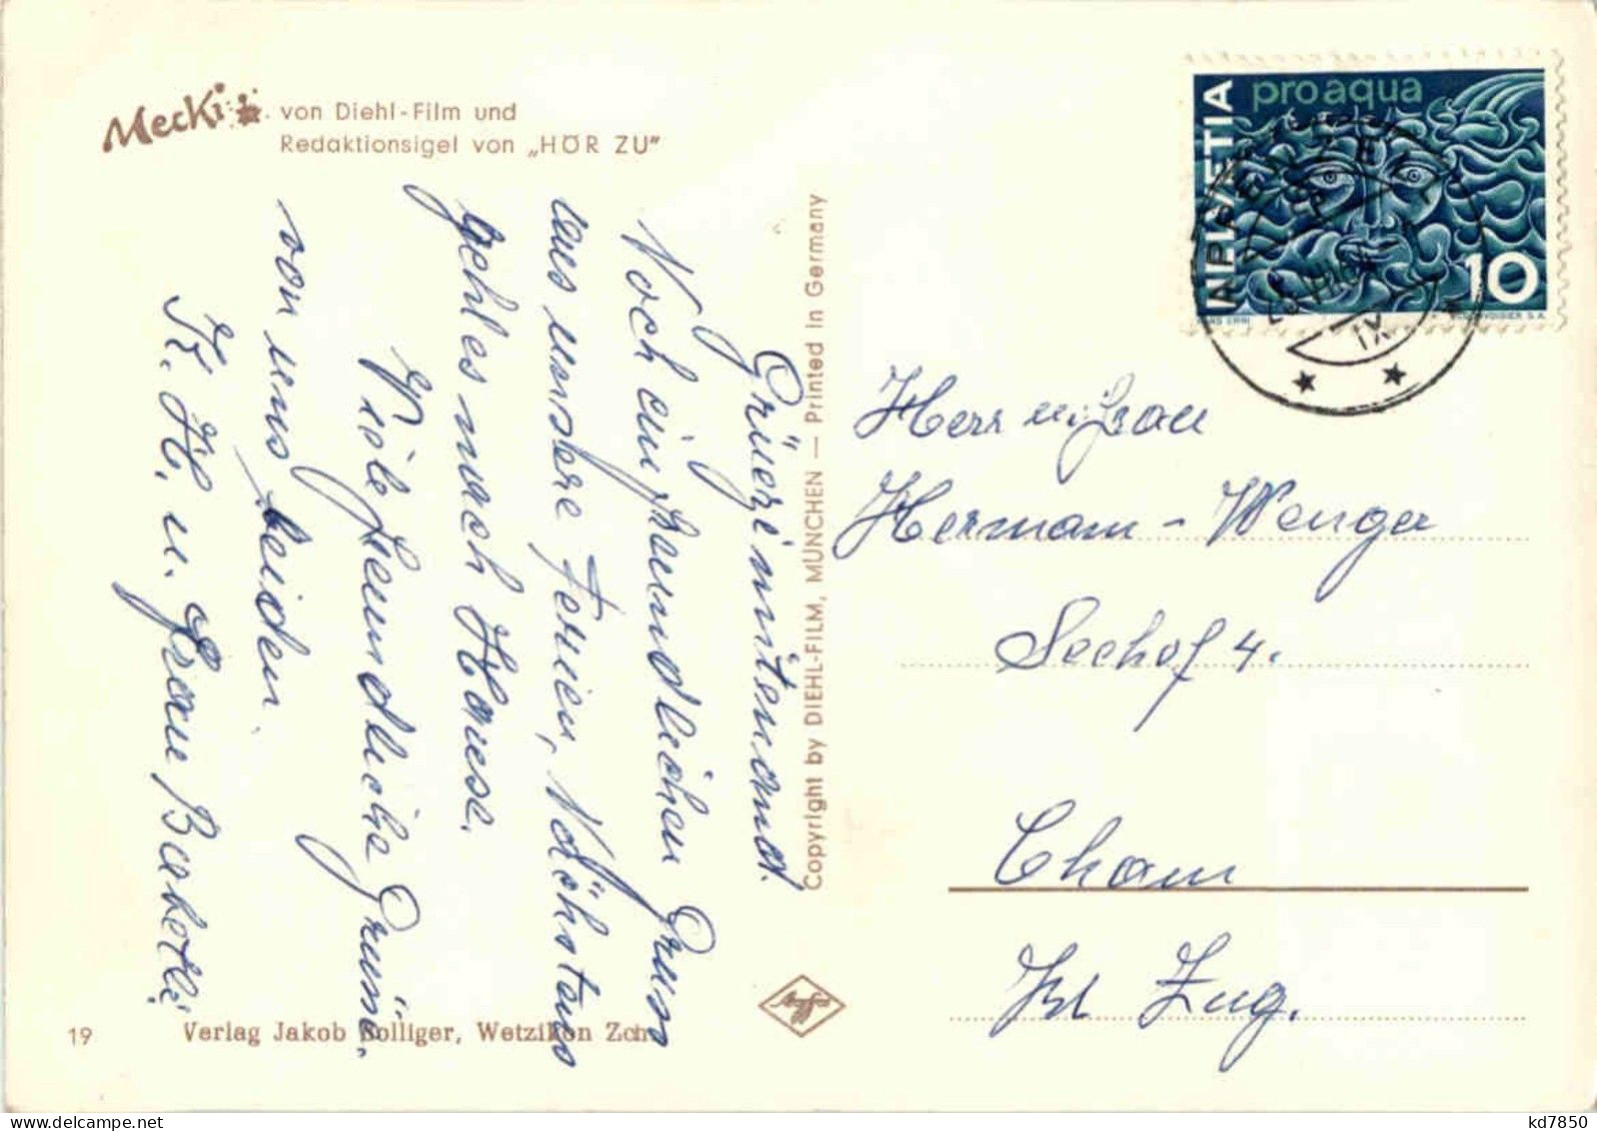 Mecki
von Diehl-Film und
Redaktionsigel von „HÖR ZU"
Grüezi mitenand.
Noch ein freundlichen Gruss
aus unsere Ferien, Nächstens
gehl es nach Hause.
Viele freundliche Grüsse
von uns beiden.
K. H. u. Frau
Copyright by DIEHL-FILM, MÜNCHEN — Printed in Germany
HELVETIA
pro aqua
10
APPENZELL
IX
Herr u. Frau
Hermann - Wenger
Seehof 4.
Cham
Kt Zug.
19
Verlag Jakob Bolliger, Wetzikon Zch
Agfa
delcampe.net
kd7850